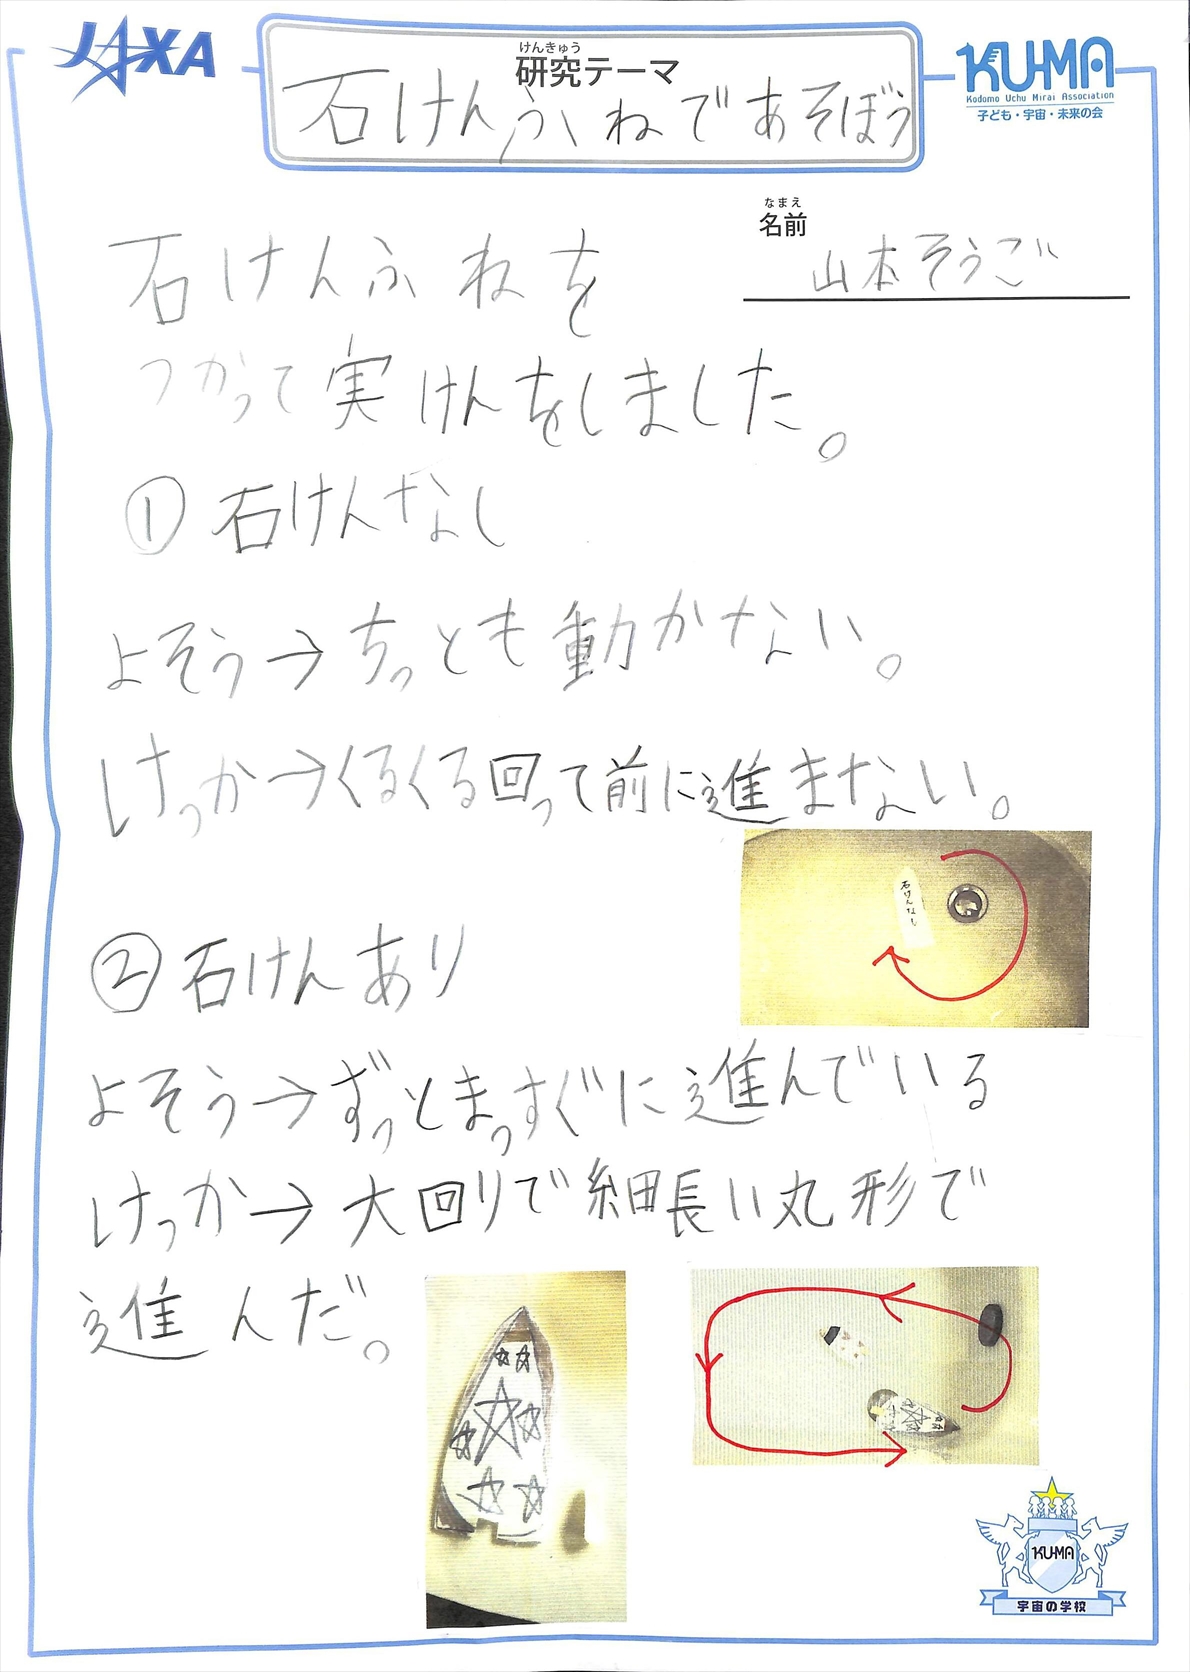 JAXA
けんきゅう
研究テーマ
石けんふねであそぼう
KU-MA
Kodomo Uchu Mirai Association
子ども・宇宙・未来の会
なまえ
名前
山本そうご
石けんふねを
つかって実けんをしました。
① 石けんなし
よそう→ちっとも動かない。
けっか→くるくる回って前に進まない。
石けんなし
② 石けんあり
よそう→ずっとまっすぐに進んでいる
けっか→大回りで細長い丸形で
進んだ。
KU-MA
宇宙の学校